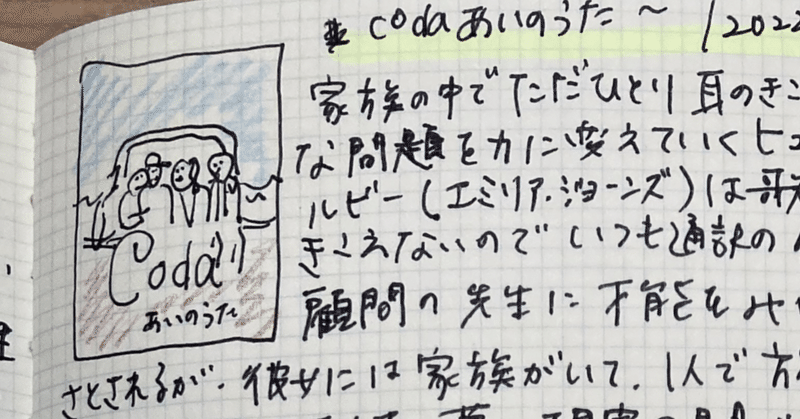 ※ codaあいのうた〜 / 2022
家族の中でただひとり耳のきこ
な問題を力に変えていくヒュ
ルビー(エミリア.ジョーンズ)は歌
きこえないのでいつも通訳の
顧問の先生に不能をみ
さとされるが、彼女には家族がいて、1人で
Coda
あいのうた